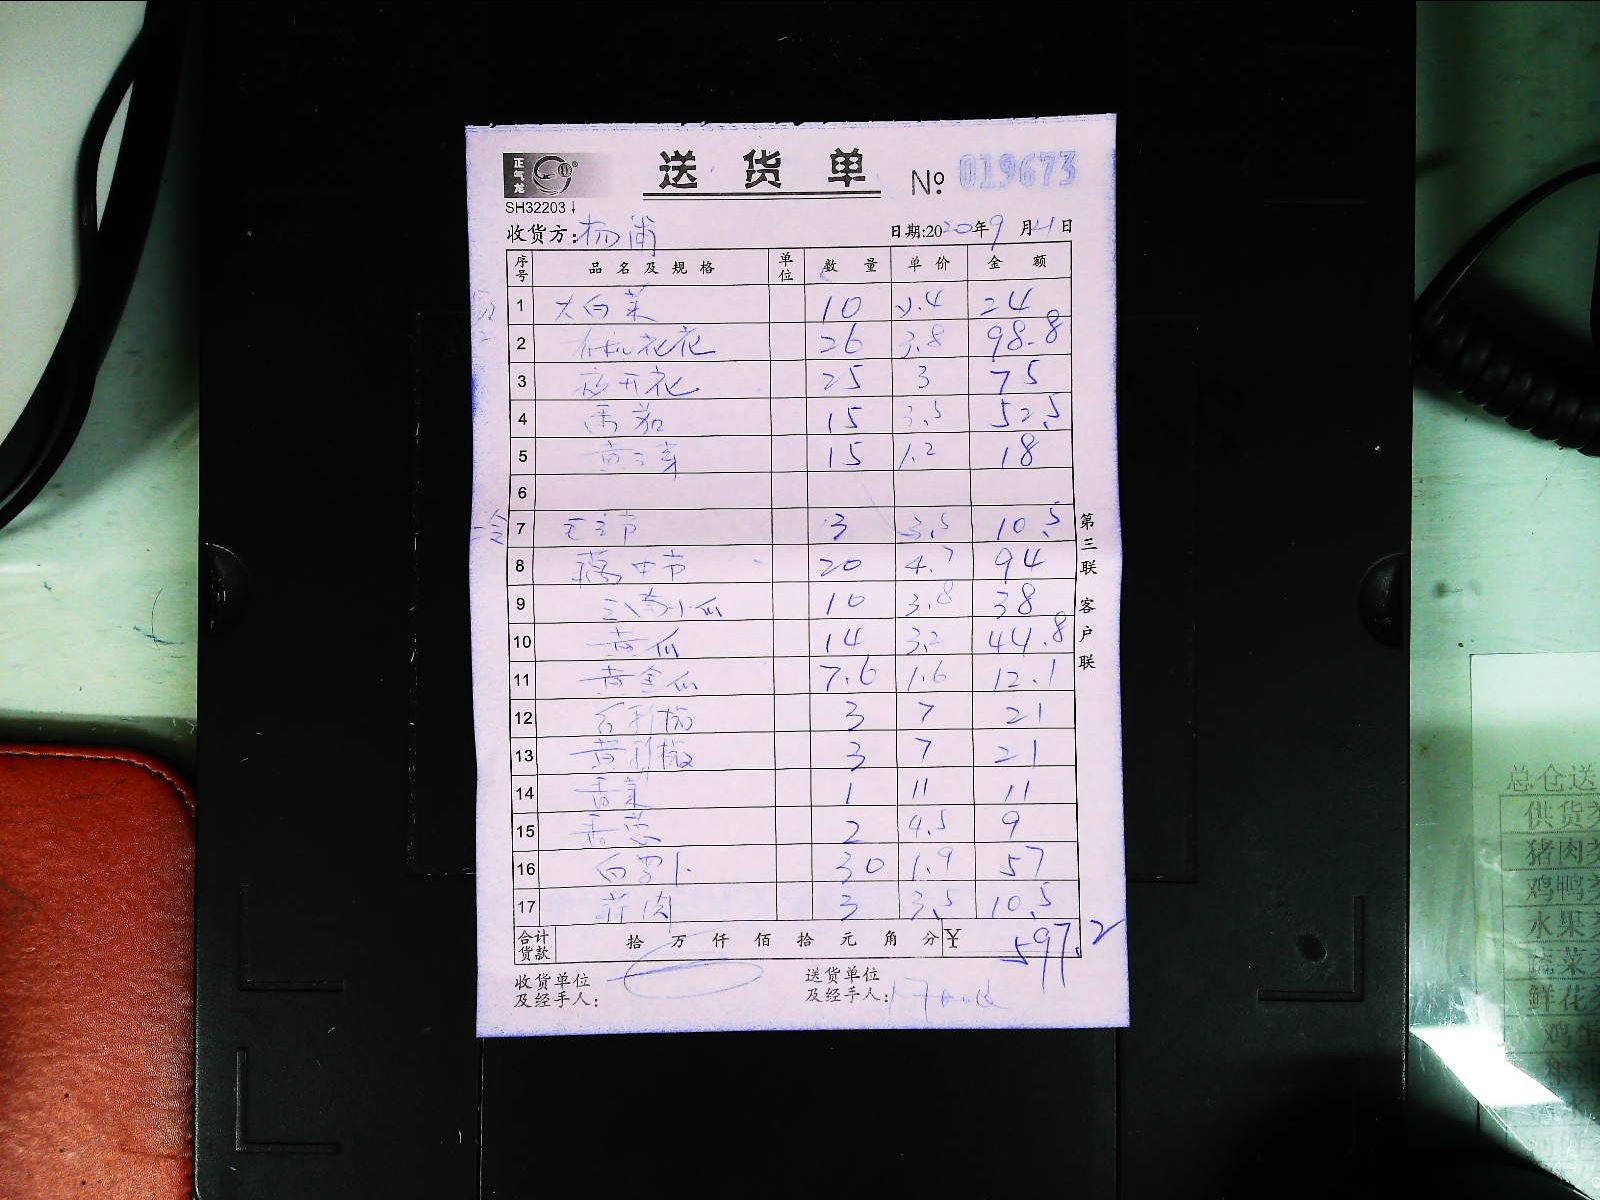 正气龙
送货单 № 019673
SH32203
收货方: 杨浦 日期:2020年9月21日
序号 品名及规格 单位 数量 单价 金额
1 大白菜 10 2.4 24
2 有机花花 26 3.8 98.8
3 25 3 75
4 番茄 15 3.5 52.5
5 15 1.2 18
6
7 3 3.5 10.5
8 20 4.7 94
9 10 3.8 38
10 黄瓜 14 3.2 44.8
11 黄金瓜 7.6 1.6 12.1
12 3 7 21
13 3 7 21
14 香菜 1 11 11
15 香葱 2 4.5 9
16 白罗卜 30 1.9 57
17 3 3.5 10.5
合计货款 拾 万 仟 佰 拾 元 角 分 ¥ 597.2
收货单位及经手人:
送货单位及经手人:
第三联 客户联
总仓送
供货
猪肉类
鸡鸭类
水果类
蔬菜类
鲜花类